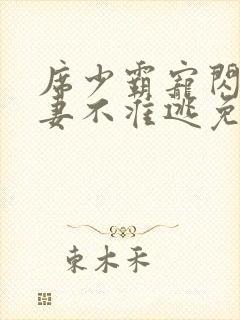 席少霸寵閃
妻不准逃免
東木禾